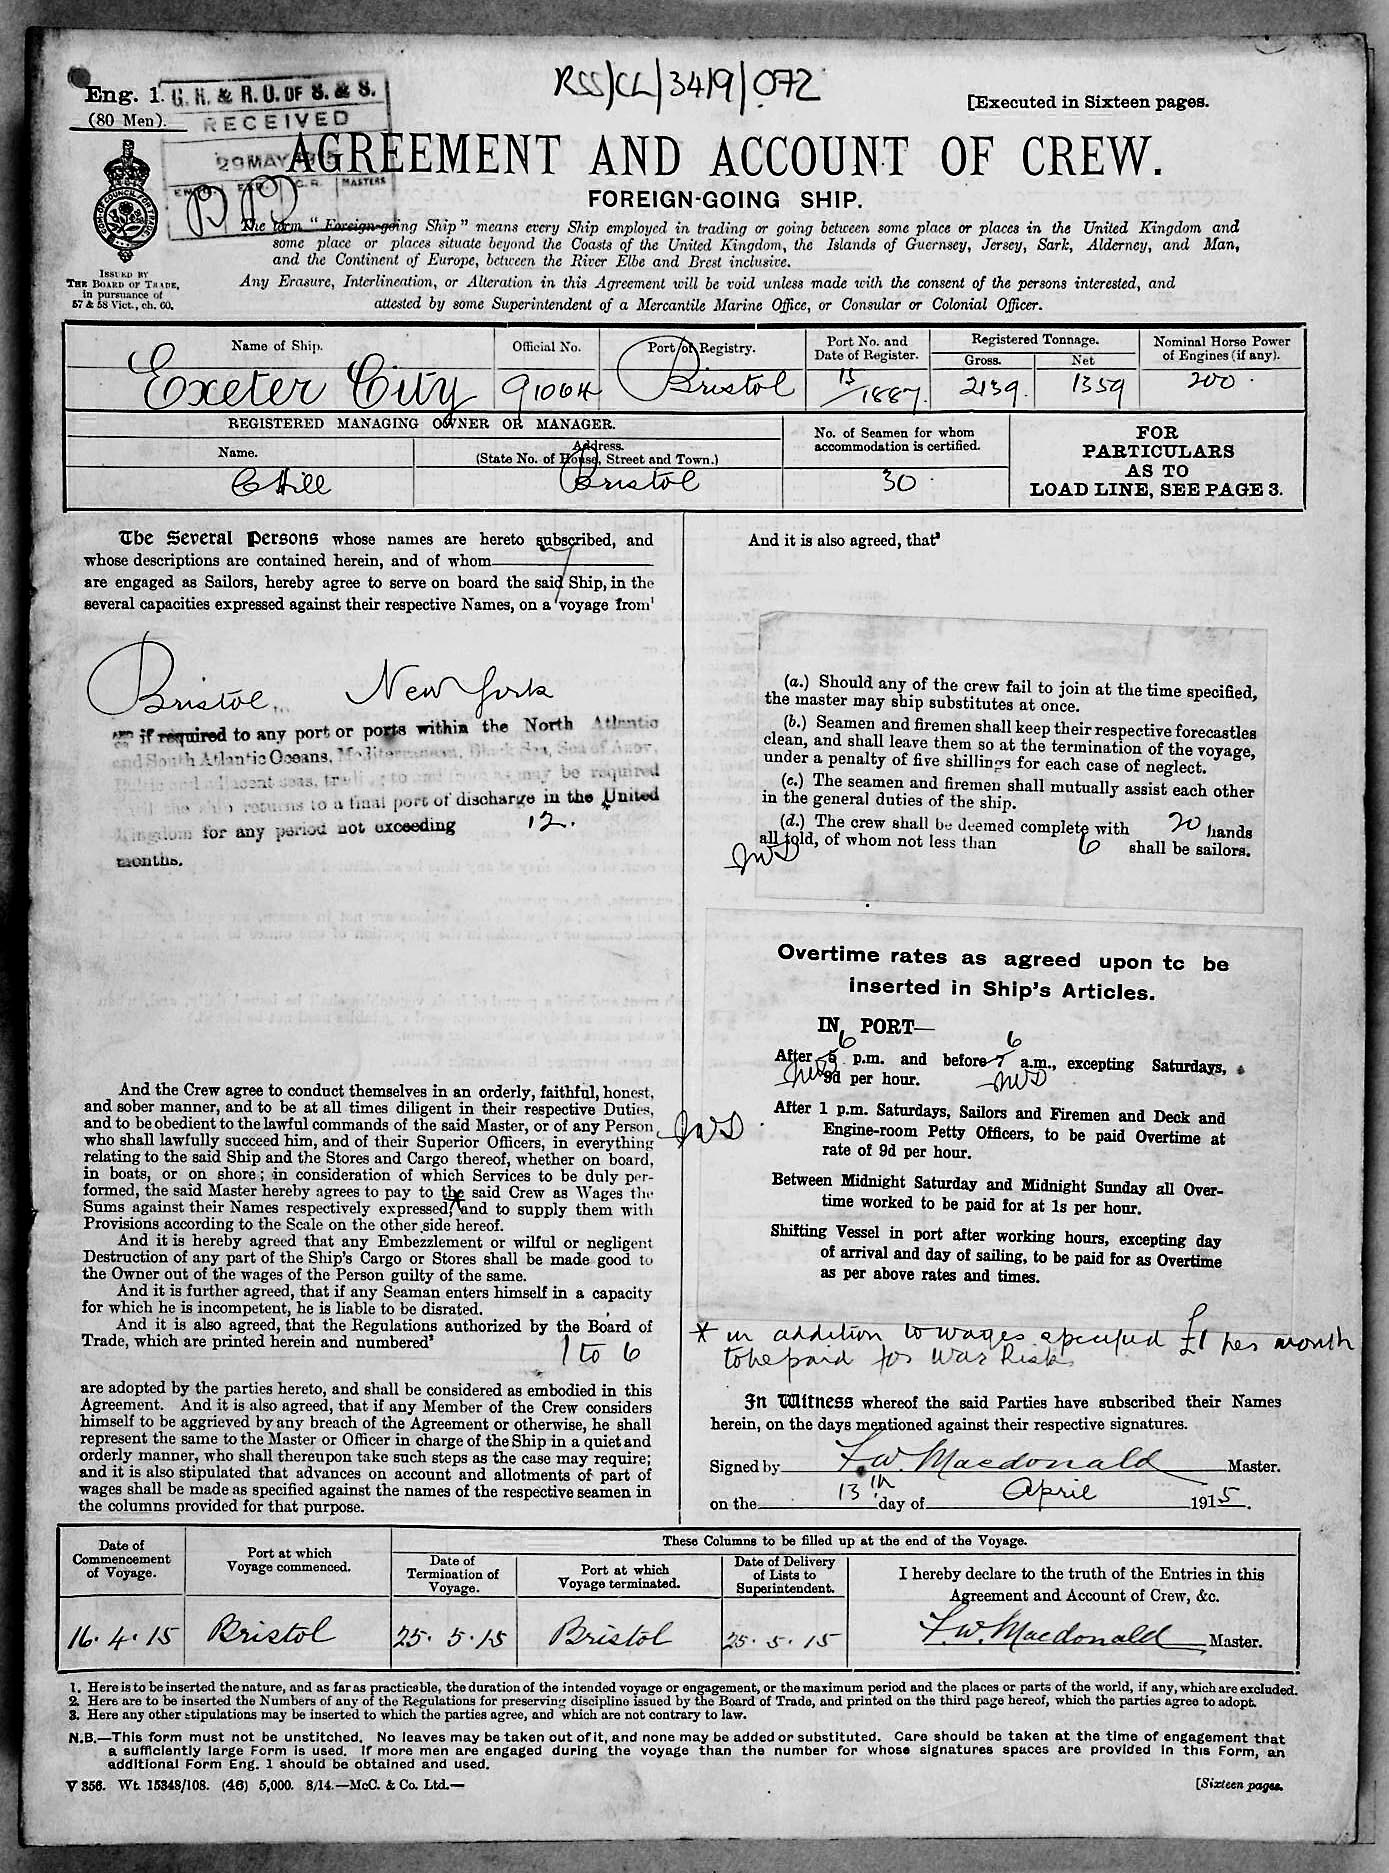 RSS/CL/3419/072
Eng. 1.
(80 Men).
G. R. & R. O. OF S. & S.
RECEIVED
29 MAY
MASTERS
[Executed in Sixteen pages.
AGREEMENT AND ACCOUNT OF CREW.
FOREIGN-GOING SHIP.
The term "Foreign-going Ship" means every Ship employed in trading or going between some place or places in the United Kingdom and
some place or places situate beyond the Coasts of the United Kingdom, the Islands of Guernsey, Jersey, Sark, Alderney, and Man,
and the Continent of Europe, between the River Elbe and Brest inclusive.
Any Erasure, Interlineation, or Alteration in this Agreement will be void unless made with the consent of the persons interested, and
attested by some Superintendent of a Mercantile Marine Office, or Consular or Colonial Officer.
ISSUED BY
THE BOARD OF TRADE,
in pursuance of
57 & 58 Vict., ch. 60.
Name of Ship.
Official No.
Port of Registry.
Port No. and
Date of Register.
Registered Tonnage.
Gross.
Net
Nominal Horse Power
of Engines (if any).
Exeter City
91064
Bristol
15/1887.
2139.
1359
200.
REGISTERED MANAGING OWNER OR MANAGER.
Name.
Address.
(State No. of House, Street and Town.)
No. of Seamen for whom
accommodation is certified.
FOR
PARTICULARS
AS TO
LOAD LINE, SEE PAGE 3.
C Hill
Bristol
30.
The Several Persons whose names are hereto subscribed, and
whose descriptions are contained herein, and of whom 7
are engaged as Sailors, hereby agree to serve on board the said Ship, in the
several capacities expressed against their respective Names, on a voyage from¹
Bristol, New York
if required to any port or ports within the North Atlantic
and South Atlantic Oceans, Mediterranean, Black Sea, Sea of Azov,
and adjacent seas, trading to and from as may be required
till the ship returns to a final port of discharge in the United
Kingdom for any period not exceeding 12.
months.
And the Crew agree to conduct themselves in an orderly, faithful, honest,
and sober manner, and to be at all times diligent in their respective Duties,
and to be obedient to the lawful commands of the said Master, or of any Person
who shall lawfully succeed him, and of their Superior Officers, in everything
relating to the said Ship and the Stores and Cargo thereof, whether on board,
in boats, or on shore; in consideration of which Services to be duly per-
formed, the said Master hereby agrees to pay to the said Crew as Wages the
Sums against their Names respectively expressed,* and to supply them with
Provisions according to the Scale on the other side hereof.
And it is hereby agreed that any Embezzlement or wilful or negligent
Destruction of any part of the Ship's Cargo or Stores shall be made good to
the Owner out of the wages of the Person guilty of the same.
And it is further agreed, that if any Seaman enters himself in a capacity
for which he is incompetent, he is liable to be disrated.
And it is also agreed, that the Regulations authorized by the Board of
Trade, which are printed herein and numbered²
1 to 6
are adopted by the parties hereto, and shall be considered as embodied in this
Agreement. And it is also agreed, that if any Member of the Crew considers
himself to be aggrieved by any breach of the Agreement or otherwise, he shall
represent the same to the Master or Officer in charge of the Ship in a quiet and
orderly manner, who shall thereupon take such steps as the case may require;
and it is also stipulated that advances on account and allotments of part of
wages shall be made as specified against the names of the respective seamen in
the columns provided for that purpose.
And it is also agreed, that³
(a.) Should any of the crew fail to join at the time specified,
the master may ship substitutes at once.
(b.) Seamen and firemen shall keep their respective forecastles
clean, and shall leave them so at the termination of the voyage,
under a penalty of five shillings for each case of neglect.
(c.) The seamen and firemen shall mutually assist each other
in the general duties of the ship.
(d.) The crew shall be deemed complete with 20 hands
all told, of whom not less than 6 shall be sailors.
Overtime rates as agreed upon to be
inserted in Ship's Articles.
IN PORT—
6 6
After 5 p.m. and before 7 a.m., excepting Saturdays,
9d per hour.
After 1 p.m. Saturdays, Sailors and Firemen and Deck and
Engine-room Petty Officers, to be paid Overtime at
rate of 9d per hour.
Between Midnight Saturday and Midnight Sunday all Over-
time worked to be paid for at 1s per hour.
Shifting Vessel in port after working hours, excepting day
of arrival and day of sailing, to be paid for as Overtime
as per above rates and times.
* in addition to wages specified £1 per month
to be paid for War Risks
In Witness whereof the said Parties have subscribed their Names
herein, on the days mentioned against their respective signatures.
Signed by F. W. Macdonald Master.
on the 13th day of April 1915.
Date of
Commencement
of Voyage.
Port at which
Voyage commenced.
These Columns to be filled up at the end of the Voyage.
Date of
Termination of
Voyage.
Port at which
Voyage terminated.
Date of Delivery
of Lists to
Superintendent.
I hereby declare to the truth of the Entries in this
Agreement and Account of Crew, &c.
16. 4. 15
Bristol
25. 5. 15
Bristol
25. 5. 15
F. W. Macdonald Master.
1. Here is to be inserted the nature, and as far as practicable, the duration of the intended voyage or engagement, or the maximum period and the places or parts of the world, if any, which are excluded.
2. Here are to be inserted the Numbers of any of the Regulations for preserving discipline issued by the Board of Trade, and printed on the third page hereof, which the parties agree to adopt.
3. Here any other stipulations may be inserted to which the parties agree, and which are not contrary to law.
N.B.—This form must not be unstitched. No leaves may be taken out of it, and none may be added or substituted. Care should be taken at the time of engagement that
a sufficiently large Form is used. If more men are engaged during the voyage than the number for whose signatures spaces are provided in this Form, an
additional Form Eng. 1 should be obtained and used.
V 356. Wt. 15348/108. (46) 5,000. 8/14.—McC. & Co. Ltd.—
[Sixteen pages.